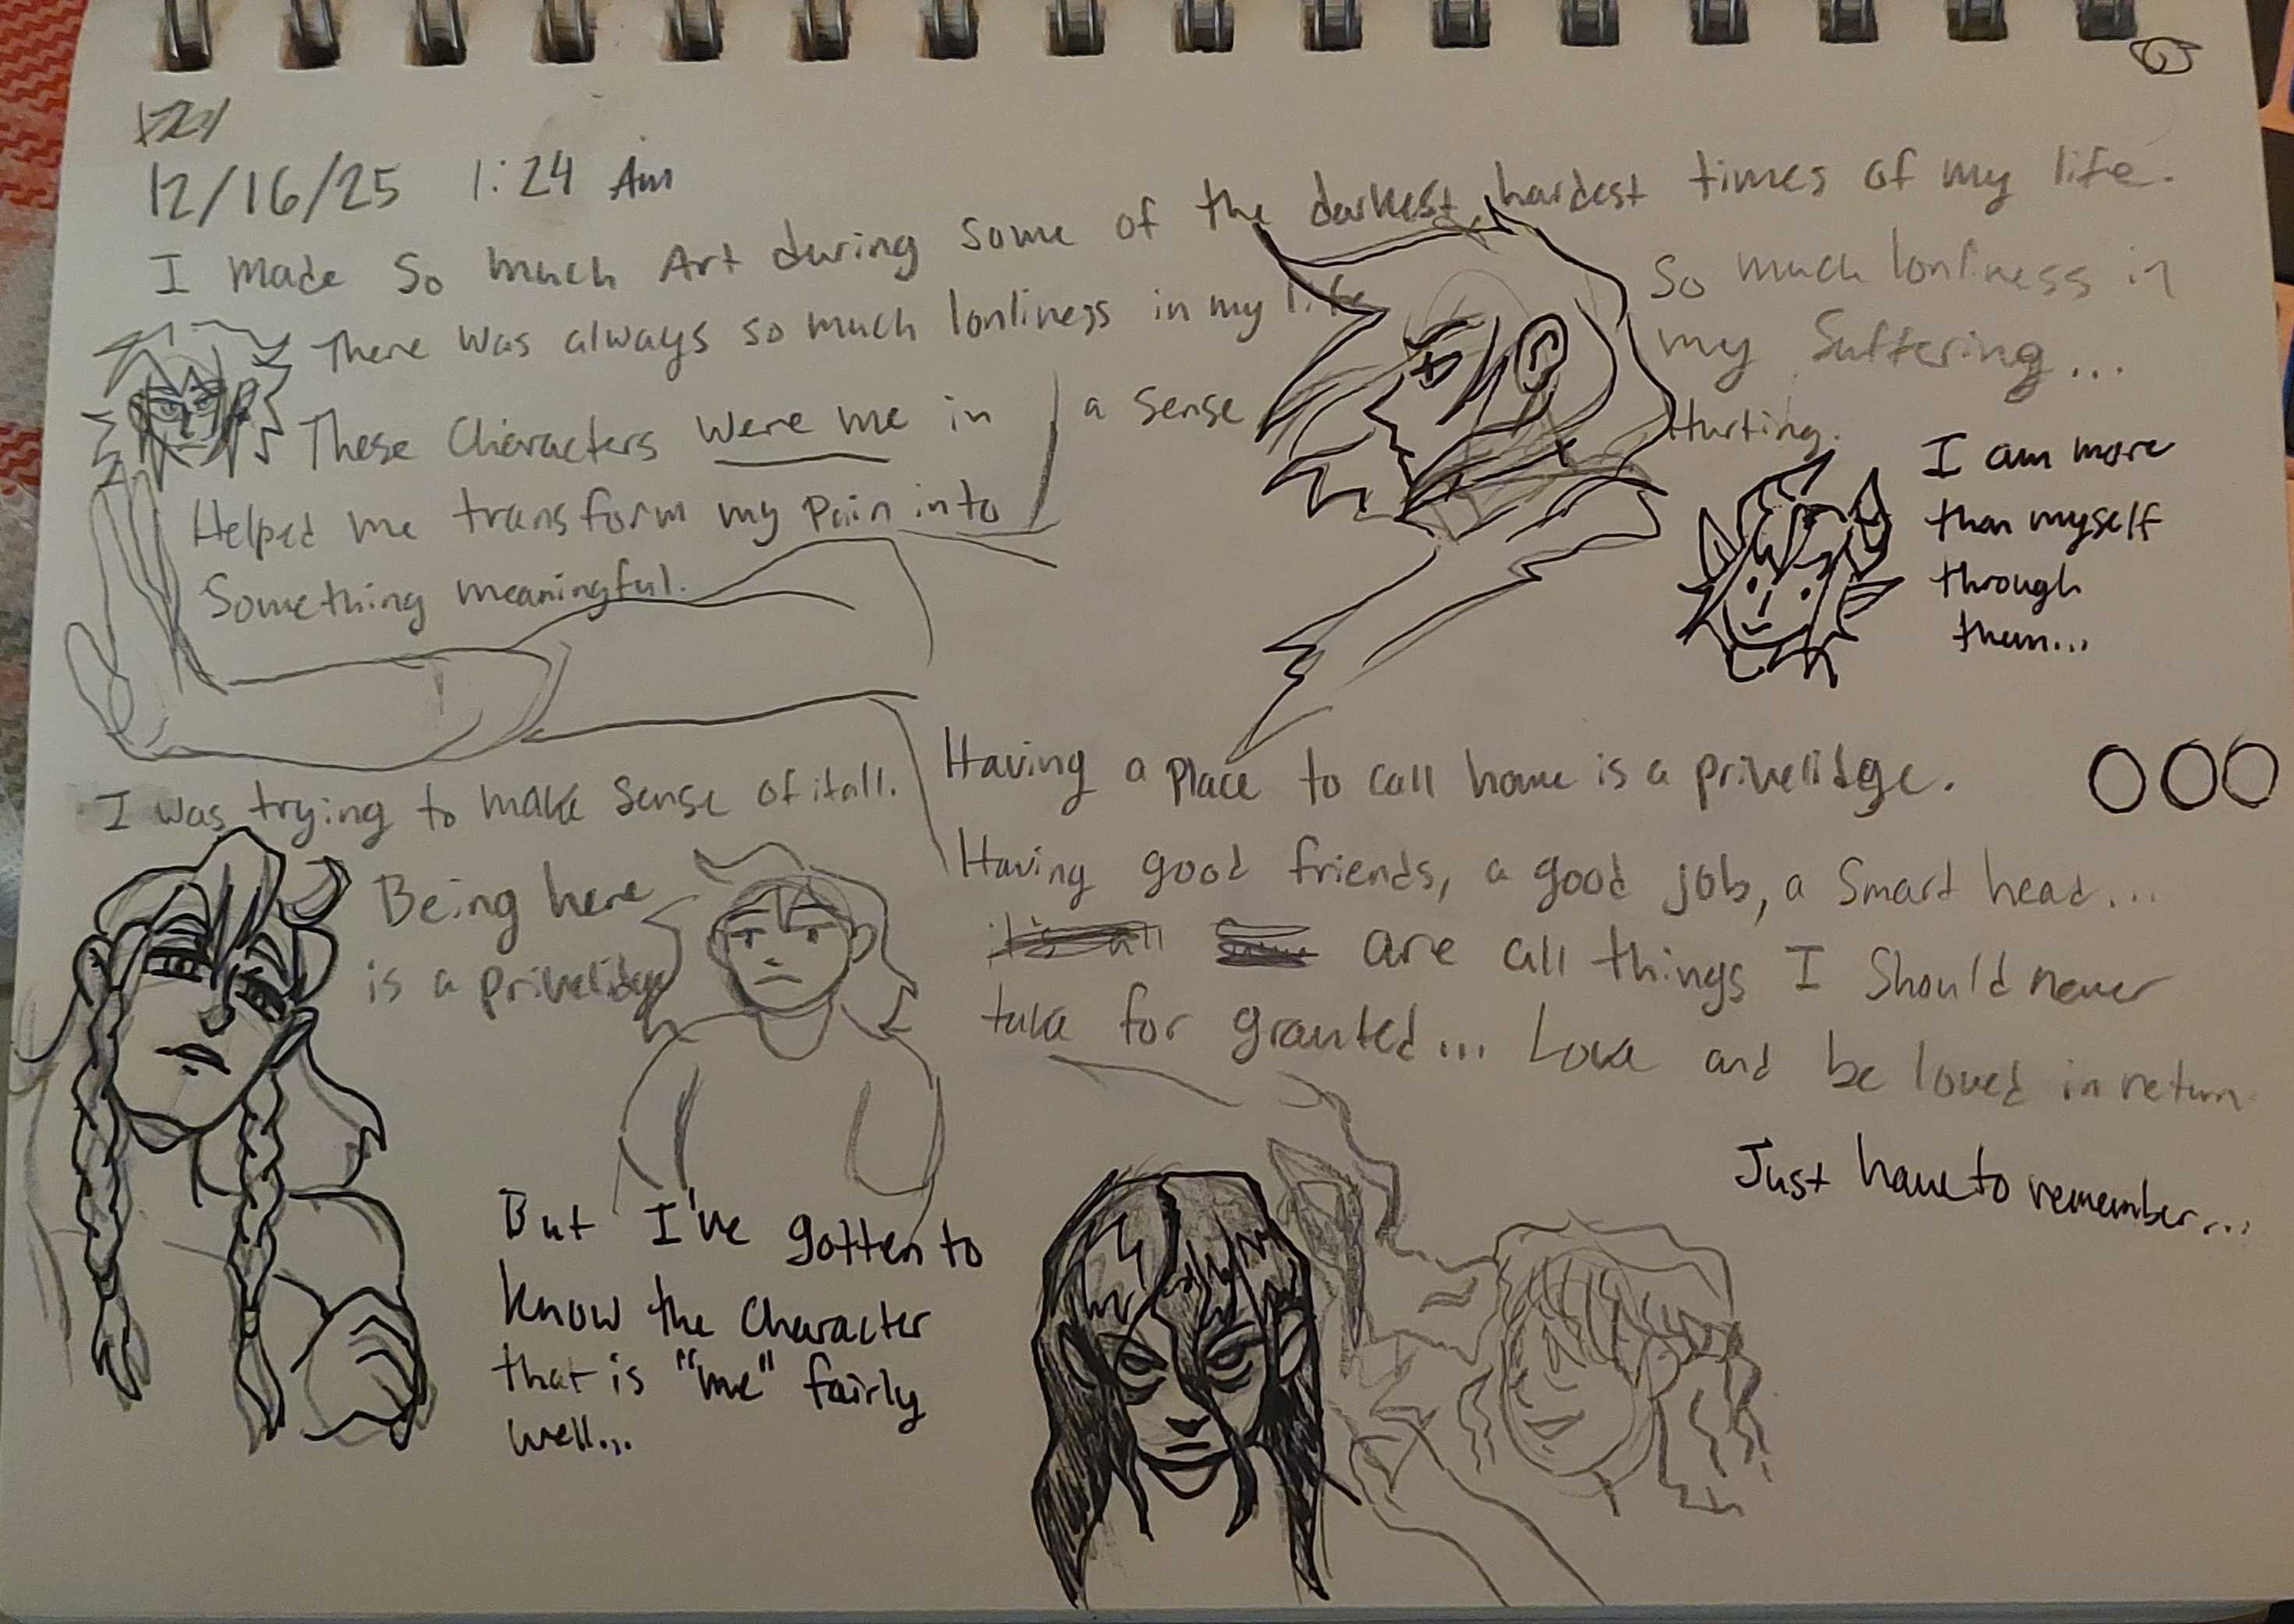 12/16/25 1:24 Am
I made So much Art during some of the darkest, hardest times of my life.
There was always so much lonliness in my life
So much lonliness in
my Suffering...
Hurting.
These Characters were me in a sense
Helped me transform my Pain into
Something meaningful.
I am more
than myself
through
them...
I was trying to make sense of it all.
Being here
is a privelidge
Having a place to call home is a privelidge.
Having good friends, a good job, a smart head...
it's all are all things I should never
take for granted... Love and be loved in return.
Just have to remember...
But I've gotten to
know the character
that is "me" fairly
well...